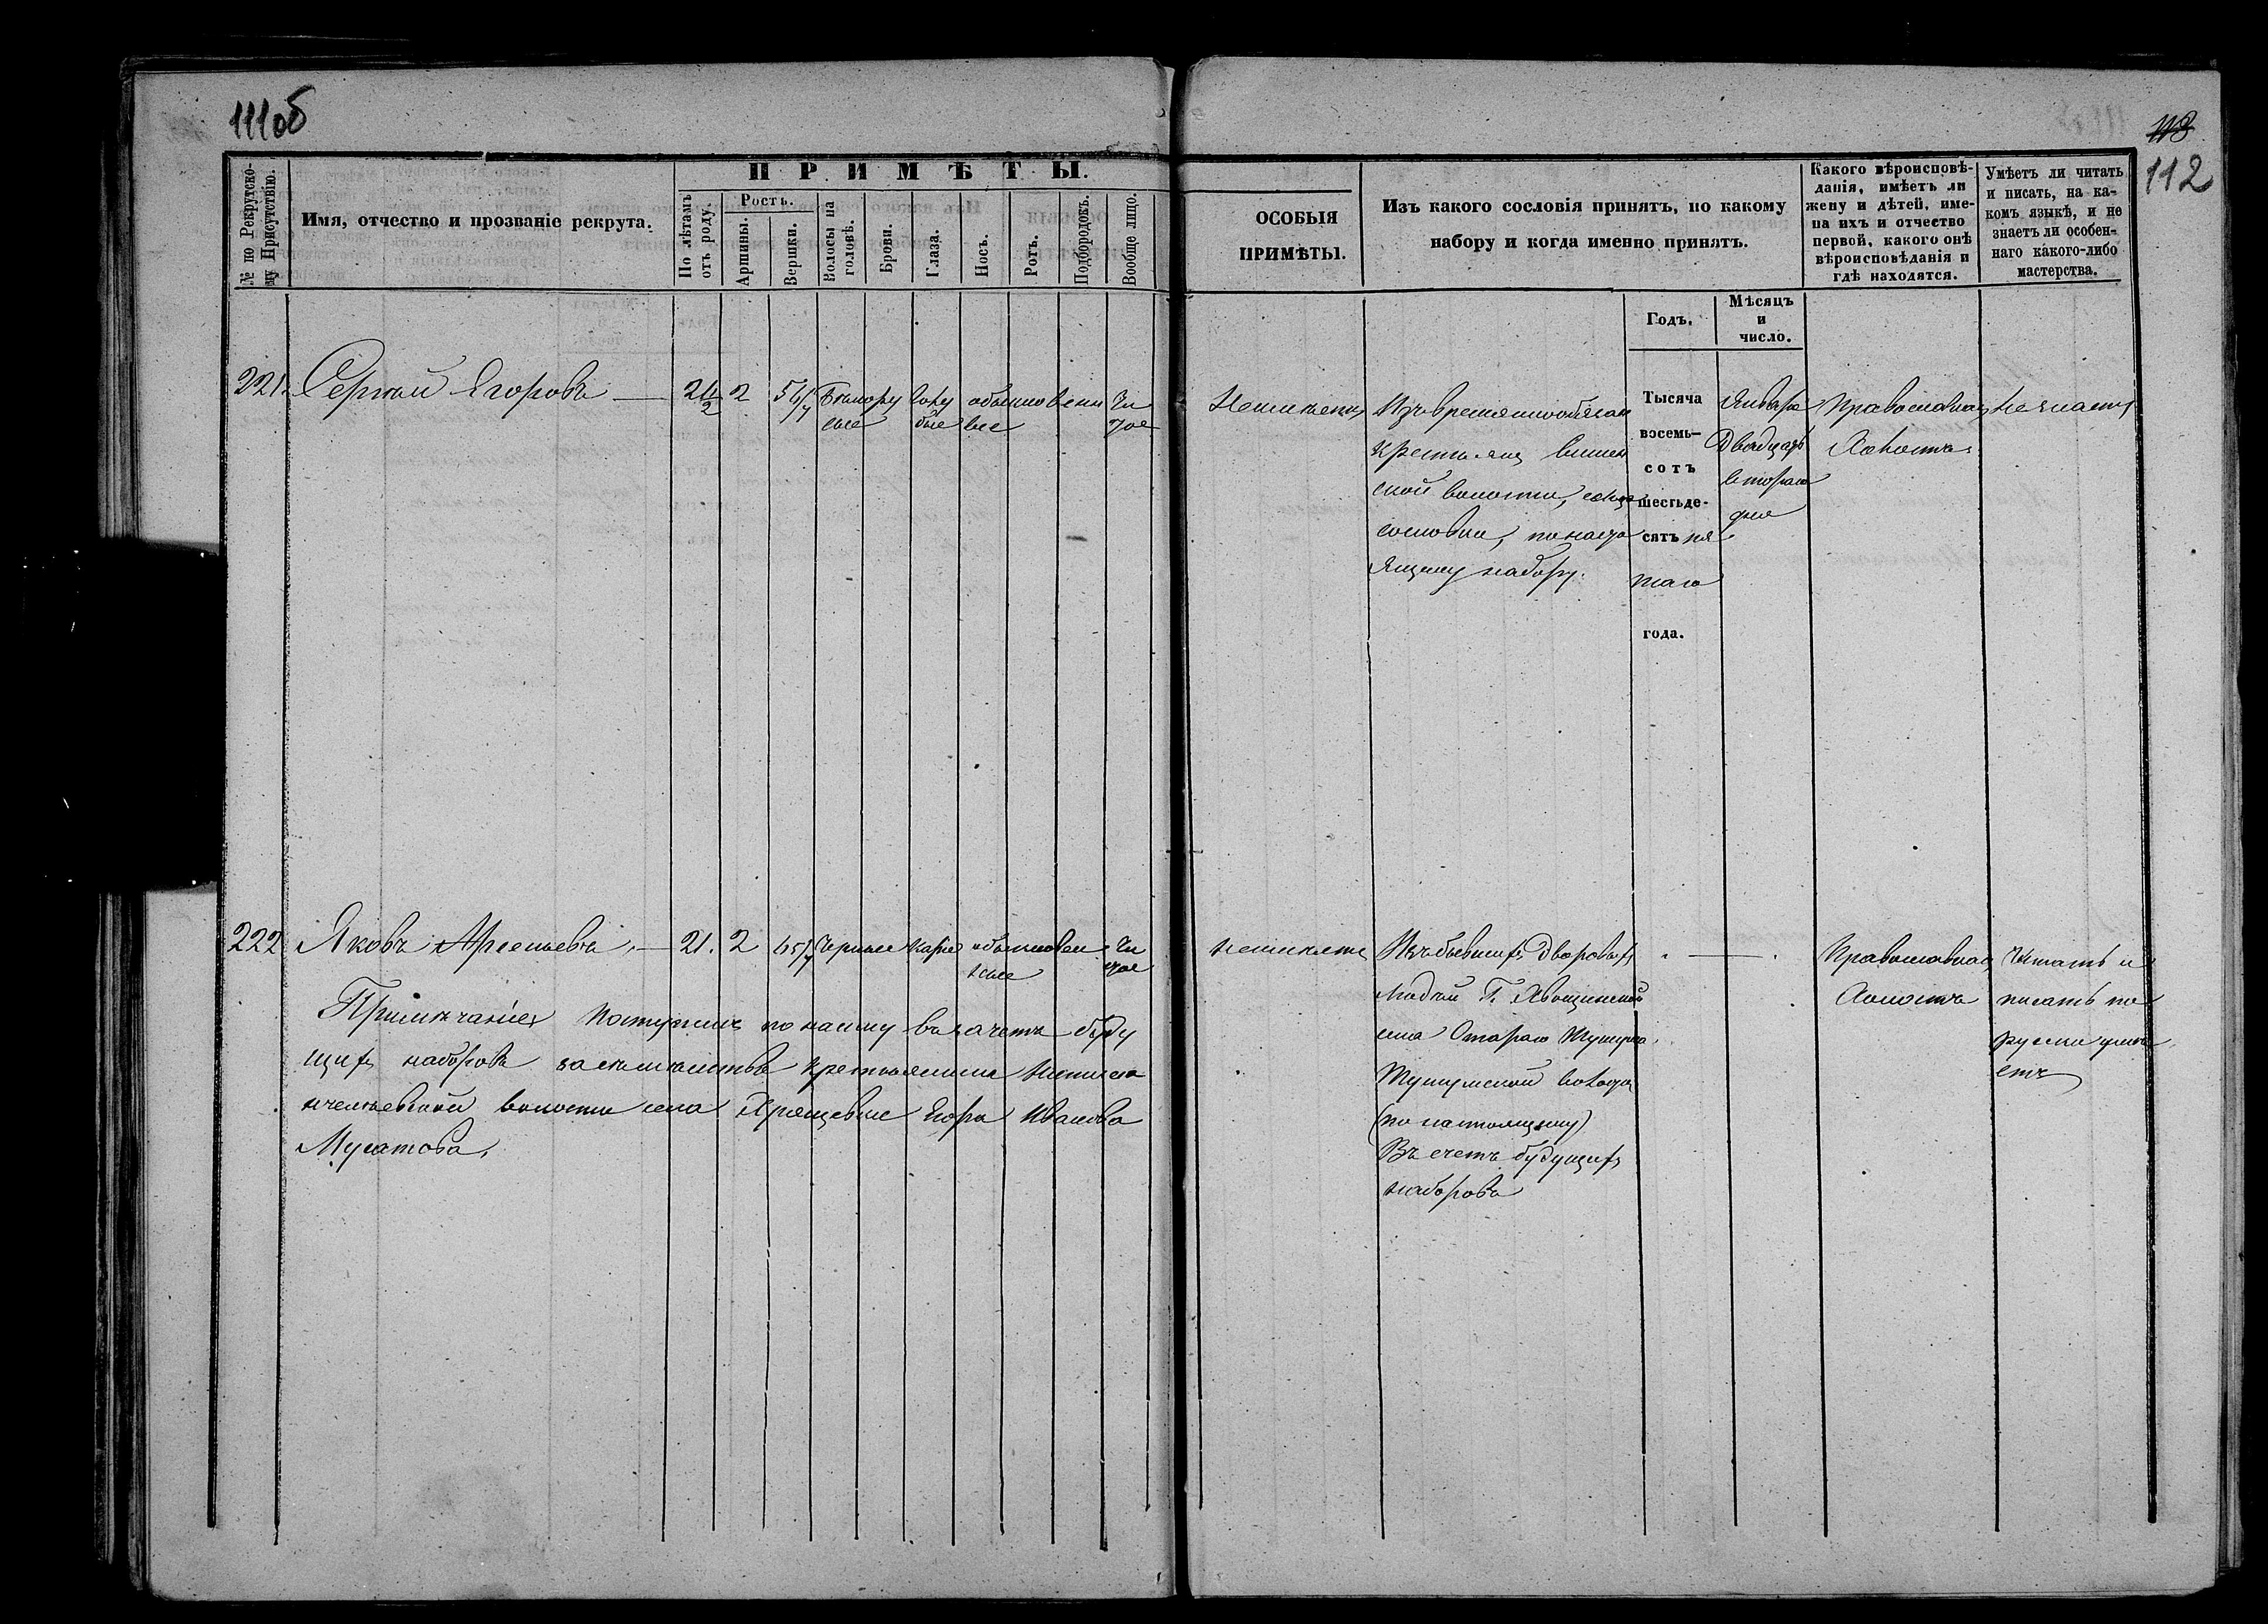 111об
113
112
№ по Рекрутско-
му Присутствію.
Имя, отчество и прозваніе рекрута.
ПРИМѢТЫ.
По лѣтамъ
отъ роду.
Ростъ.
Аршины.
Вершки.
Волосы на
головѣ.
Брови.
Глаза.
Носъ.
Ротъ.
Подбородокъ.
Вообще лицо.
ОСОБЫЯ
ПРИМѢТЫ.
Изъ какого сословія принятъ, по какому
набору и когда именно принятъ.
Какого вѣроисповѣ-
данія, имѣетъ ли
жену и дѣтей, име-
на ихъ и отчество
первой, какого онѣ
вѣроисповѣданія и
гдѣ находятся.
Умѣетъ ли читать
и писать, на ка-
комъ языкѣ, и не
знаетъ ли особен-
наго какого-либо
мастерства.
Годъ.
Мѣсяцъ
и
число.
221. Сергѣй Ягоровъ
2
Белору
сые
Голу
бые
обыкновенн
ые
Чи
стое
Неимѣетъ
Изъ временнообязан
крестьянъ
ской волости, села
по насто
ящему набору.
Тысяча
восемь-
сотъ
шестьде-
сятъ пя
таго
года.
Января
Двадцать
втораго
дня
Православнаго
Холостъ
Не знаетъ
222 Яковъ Арсеньевъ
21. 2
Черные Карие обыкновен
ные
Чи
стое
неимѣетъ
Изъ бывшихъ Дворовыхъ
людей Г.
села Стараго
волости
(по настоящему)
Въ счетъ будущихъ
наборовъ
Православнаго
Холостъ
Читать и
писать по
русски умѣ
етъ
Примѣчаніе: Поступилъ по найму въ зачетъ буду
щихъ наборовъ крестьянина
волости села Хрящевки Егора Иванова
Мусатова.